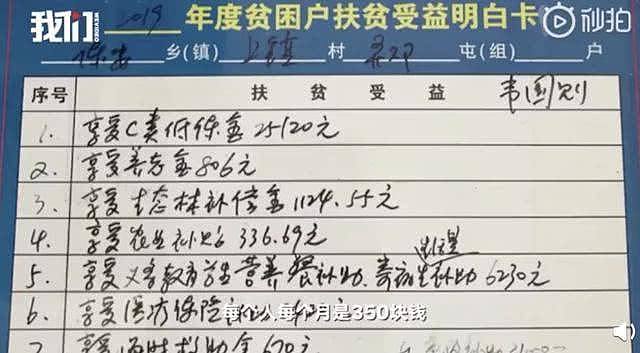 我们 2019 年度贫困户扶贫受益明白卡 秒拍
保安 乡(镇) 上镇 村 屯(组) 户
序号 扶贫受益 韦国则
1. 享受C类低保金25120元
2. 享受养老金806元
3. 享受生态林补偿金1124.55元
4. 享受农业补贴336.69元
5. 享受义务教育学生营养餐补助、寄宿生补助6230元
6. 享受医疗保险
每个人每个月是350块钱
7 享受临时救助金670元